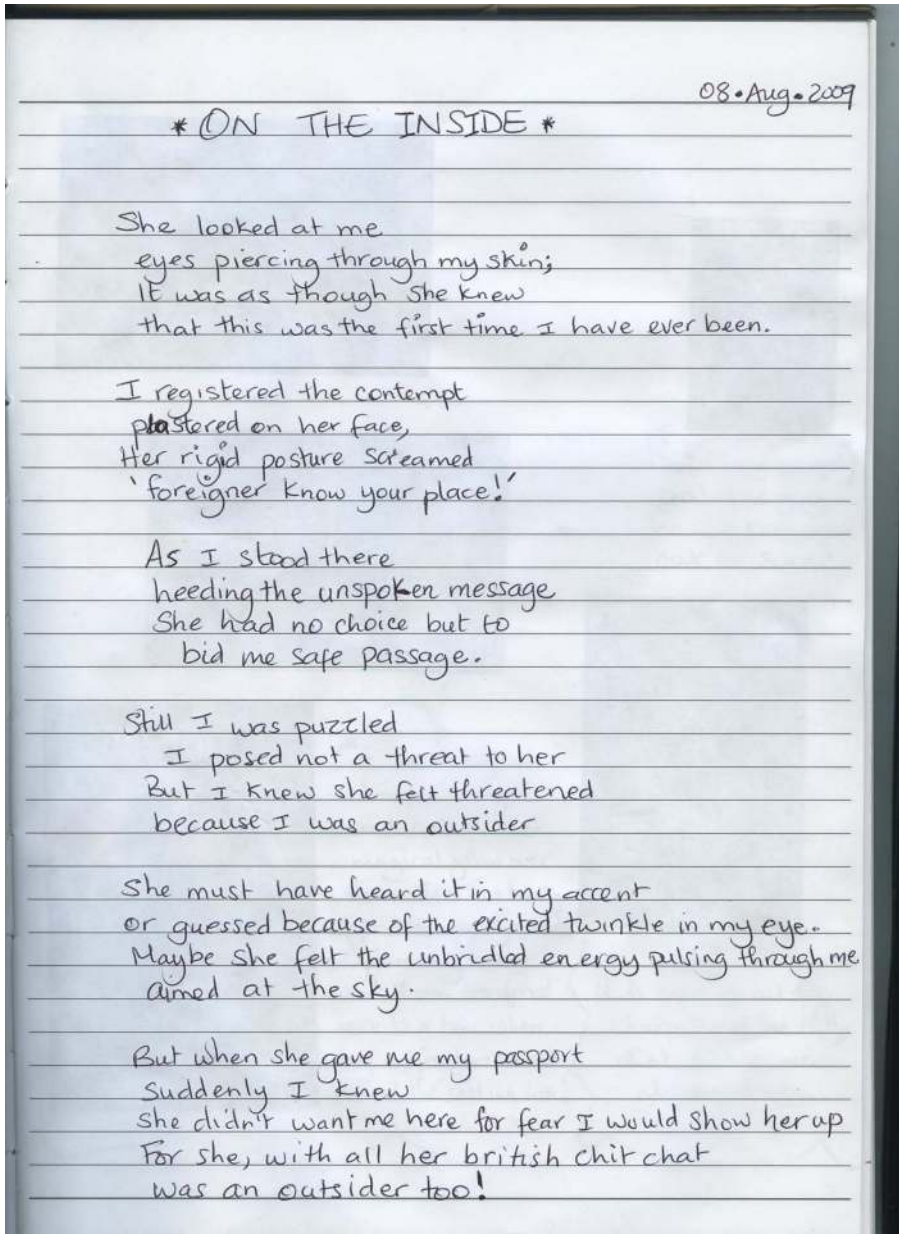 08.Aug.2009
* ON THE INSIDE *
She looked at me
eyes piercing through my skin;
It was as though she knew
that this was the first time I have ever been.
I registered the contempt
plastered on her face,
Her rigid posture screamed
'foreigner know your place!'
As I stood there
heeding the unspoken message
She had no choice but to
bid me safe passage.
Still I was puzzled
I posed not a threat to her
But I knew she felt threatened
because I was an outsider
She must have heard it in my accent
or guessed because of the excited twinkle in my eye.
Maybe she felt the unbridled energy pulsing through me
aimed at the sky.
But when she gave me my passport
Suddenly I knew
She didn't want me here for fear I would show her up
For she, with all her british chit chat
was an outsider too!